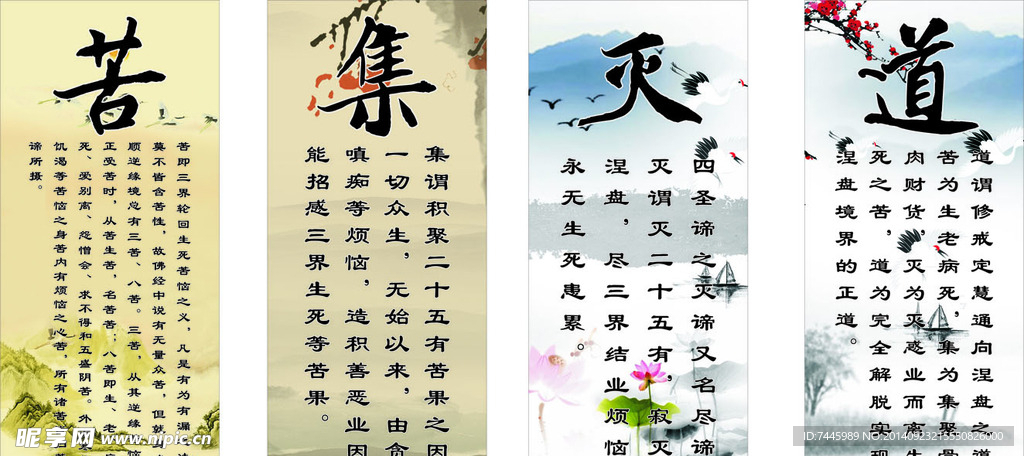 苦
苦即三界轮回生死苦恼之义，凡是有为有漏
莫不皆含苦性，故佛经中说有无量众苦，但就
顺逆缘境总有三苦、八苦。三苦，从其逆缘恼
正受苦时，从苦生苦，名苦苦；八苦即生、老
死、爱别离、怨憎会、求不得和五盛阴苦。外
饥渴等苦恼之身苦内有烦恼之心苦，所有诸苦
谛所摄。
集
集谓积聚二十五有苦果之因
一切众生，无始以来，由贪
嗔痴等烦恼，造积善恶业因
能招感三界生死等苦果。
灭
四圣谛之灭谛又名尽谛
灭谓灭二十五有，寂灭
涅盘，尽三界结业烦恼
永无生死患累。
道
道谓修戒定慧通向涅盘之道
苦为生老病死，集为集聚骨
肉财货，灭为灭惑业而离生
死之苦，道为完全解脱实现
涅盘境界的正道。
昵享网 www.nipic.cn
ID:7445989 NO:20140923215530826000